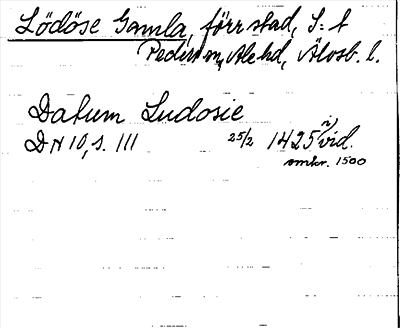 Lödöse Gamla, förr stad, S:t
Peders sn, Ale hd, Älvsb. l.
Datum Ludosie
DN 10, s. 111 25/2 1425 i) vid.
omkr. 1500